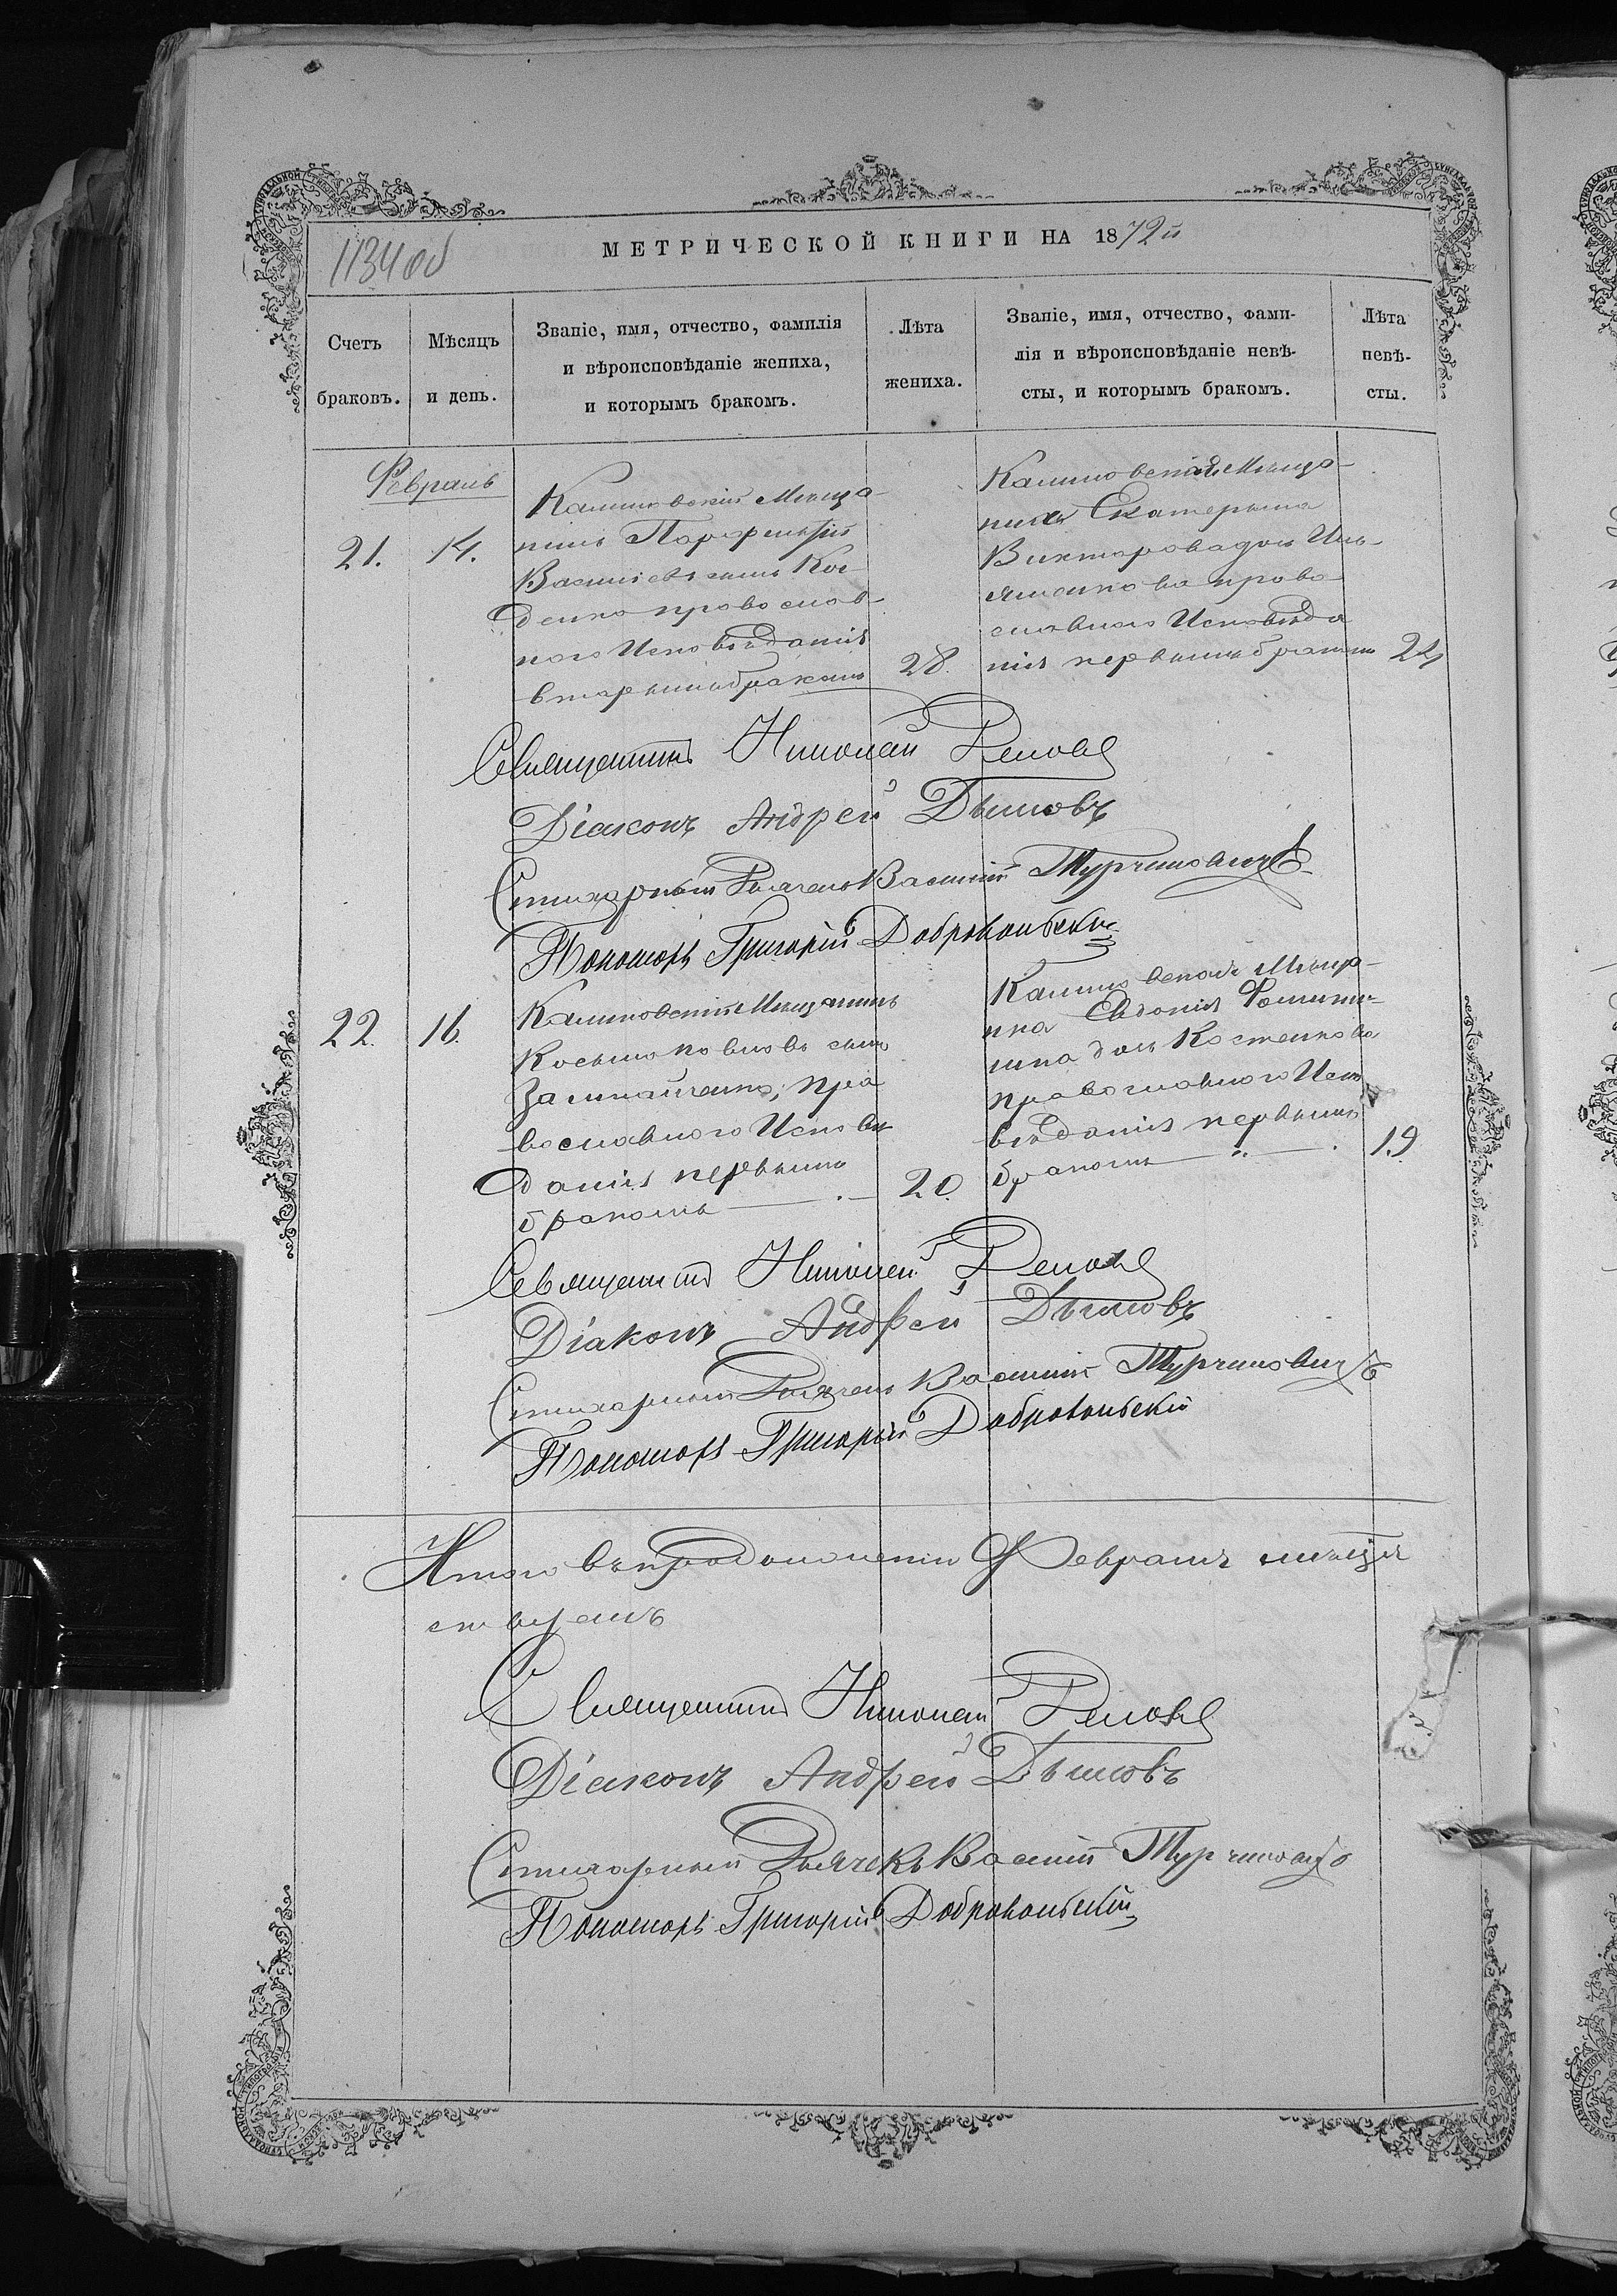 1134об
МЕТРИЧЕСКОЙ КНИГИ НА 1872й
Счетъ браковъ.
Мѣсяцъ и день.
Званіе, имя, отчество, фамилія
и вѣроисповѣданіе жениха,
и которымъ бракомъ.
Лѣта жениха.
Званіе, имя, отчество, фами-
лія и вѣроисповѣданіе невѣ-
сты, и которымъ бракомъ.
Лѣта невѣ-
сты.
Февраль
21. 14.
Калиновскій Мѣща-
нинъ Парфентій
Василіевъ сынъ Кос-
денко православ-
ного Исповѣданія
вторымъ бракомъ 28.
Калиновская Мѣща-
нка Екатерина
Викторова дочь Иль-
яшенкова право-
славного Исповѣда
нія первымъ бракомъ 24
Священникъ Николай
Діаконъ Андрей Дымовъ
Стихарный Дьячекъ Василій Турчиновичъ
Пономарь Григорій Добровольскій
22. 16.
Калиновскій Мѣщанинъ
Косьма сынъ
пра
вославного Исповѣ
данія первымъ
бракомъ 20.
Калиновская Мѣща-
нка Евдокія
дочь Костенкова
православного Испо
вѣданія первымъ
бракомъ 19.
Священникъ Николай
Діаконъ Андрей Дымовъ
Стихарный Дьячекъ Василій Турчиновичъ
Пономарь Григорій Добровольскій
Итого въ продолженіи Февраля мѣсяца
Священникъ Николай
Діаконъ Андрей Дымовъ
Стихарный Дьячекъ Василій Турчиновичъ
Пономарь Григорій Добровольскій